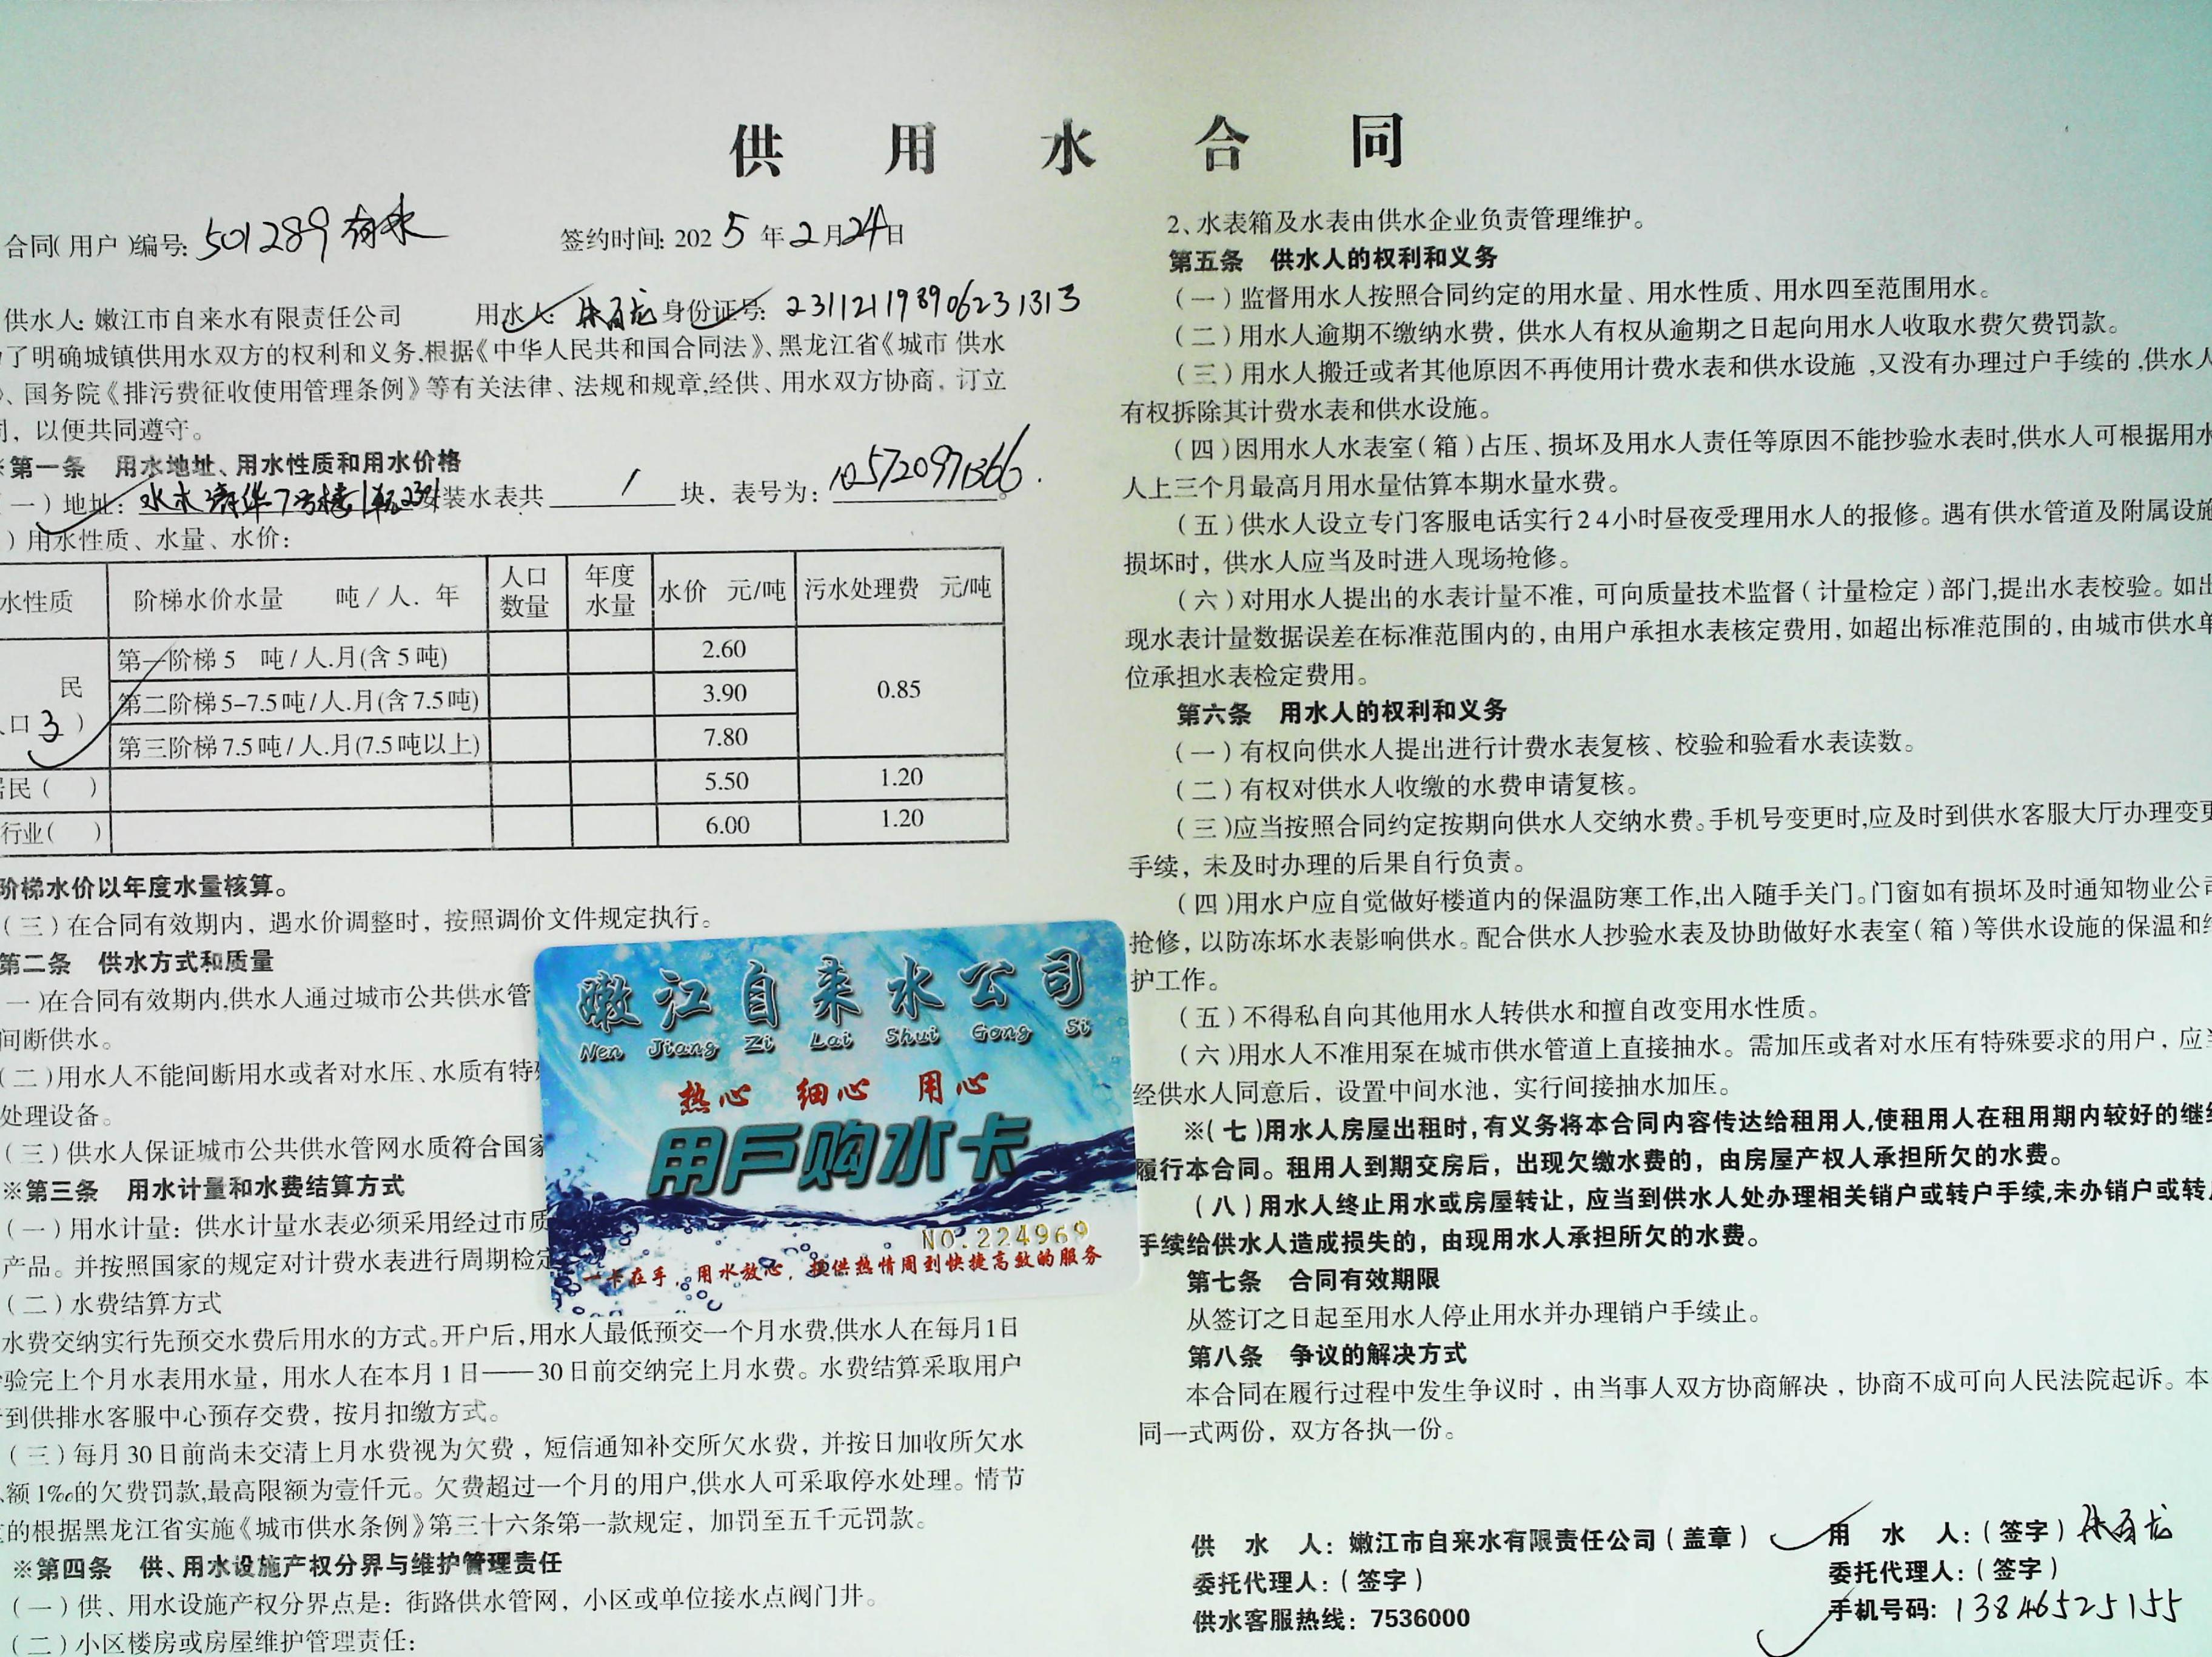 供用水合同
合同(用户)编号: 501289 有水
签约时间: 2025年2月24日
供水人: 嫩江市自来水有限责任公司 用水人: 身份证号: 231121198906231313
了明确城镇供用水双方的权利和义务,根据《中华人民共和国合同法》、黑龙江省《城市 供水
》、国务院《排污费征收使用管理条例》等有关法律、法规和规章,经供、用水双方协商, 订立
同, 以便共同遵守。
※第一条 用水地址、用水性质和用水价格
一)地址: 水木清华7号楼1单元2301安装水表共 1 块, 表号为:
)用水性质、水量、水价:
水性质 阶梯水价水量 吨/人. 年 人口数量 年度水量 水价 元/吨 污水处理费 元/吨
民
口 3 )
第一阶梯5 吨/人.月(含5吨) 2.60
第二阶梯5-7.5吨/人.月(含7.5吨) 3.90 0.85
第三阶梯7.5吨/人.月(7.5吨以上) 7.80
居民( ) 5.50 1.20
行业( ) 6.00 1.20
阶梯水价以年度水量核算。
(三)在合同有效期内, 遇水价调整时, 按照调价文件规定执行。
第二条 供水方式和质量
一)在合同有效期内,供水人通过城市公共供水管
间断供水。
(二)用水人不能间断用水或者对水压、水质有特
处理设备。
(三)供水人保证城市公共供水管网水质符合国家
※第三条 用水计量和水费结算方式
(一)用水计量: 供水计量水表必须采用经过市质
产品。并按照国家的规定对计费水表进行周期检定
(二)水费结算方式
水费交纳实行先预交水费后用水的方式。开户后,用水人最低预交一个月水费,供水人在每月1日
验完上个月水表用水量, 用水人在本月1日——30日前交纳完上月水费。水费结算采取用户
到供排水客服中心预存交费, 按月扣缴方式。
(三)每月30日前尚未交清上月水费视为欠费, 短信通知补交所欠水费, 并按日加收所欠水
额1‰的欠费罚款,最高限额为壹仟元。欠费超过一个月的用户,供水人可采取停水处理。情节
的根据黑龙江省实施《城市供水条例》第三十六条第一款规定, 加罚至五千元罚款。
※第四条 供、用水设施产权分界与维护管理责任
(一)供、用水设施产权分界点是: 街路供水管网, 小区或单位接水点阀门井。
(二)小区楼房或房屋维护管理责任:
嫩江自来水公司
Nen Jiang Zi Lai Shui Gong Si
热心 细心 用心
用户购水卡
NO.224969
一卡在手, 用水放心, 提供热情周到快捷高效的服务
2、水表箱及水表由供水企业负责管理维护。
第五条 供水人的权利和义务
(一)监督用水人按照合同约定的用水量、用水性质、用水四至范围用水。
(二)用水人逾期不缴纳水费, 供水人有权从逾期之日起向用水人收取水费欠费罚款。
(三)用水人搬迁或者其他原因不再使用计费水表和供水设施 ,又没有办理过户手续的 ,供水人
有权拆除其计费水表和供水设施。
(四)因用水人水表室(箱)占压、损坏及用水人责任等原因不能抄验水表时,供水人可根据用水
人上三个月最高月用水量估算本期水量水费。
(五)供水人设立专门客服电话实行24小时昼夜受理用水人的报修。遇有供水管道及附属设施
损坏时, 供水人应当及时进入现场抢修。
(六)对用水人提出的水表计量不准, 可向质量技术监督(计量检定)部门,提出水表校验。如出
现水表计量数据误差在标准范围内的, 由用户承担水表核定费用, 如超出标准范围的, 由城市供水单
位承担水表检定费用。
第六条 用水人的权利和义务
(一)有权向供水人提出进行计费水表复核、校验和验看水表读数。
(二)有权对供水人收缴的水费申请复核。
(三)应当按照合同约定按期向供水人交纳水费。手机号变更时,应及时到供水客服大厅办理变更
手续, 未及时办理的后果自行负责。
(四)用水户应自觉做好楼道内的保温防寒工作,出入随手关门。门窗如有损坏及时通知物业公司
抢修, 以防冻坏水表影响供水。配合供水人抄验水表及协助做好水表室(箱)等供水设施的保温和维
护工作。
(五)不得私自向其他用水人转供水和擅自改变用水性质。
(六)用水人不准用泵在城市供水管道上直接抽水。需加压或者对水压有特殊要求的用户, 应当
经供水人同意后, 设置中间水池, 实行间接抽水加压。
※(七)用水人房屋出租时, 有义务将本合同内容传达给租用人,使租用人在租用期内较好的继续
履行本合同。租用人到期交房后, 出现欠缴水费的, 由房屋产权人承担所欠的水费。
(八)用水人终止用水或房屋转让, 应当到供水人处办理相关销户或转户手续,未办销户或转户
手续给供水人造成损失的, 由现用水人承担所欠的水费。
第七条 合同有效期限
从签订之日起至用水人停止用水并办理销户手续止。
第八条 争议的解决方式
本合同在履行过程中发生争议时, 由当事人双方协商解决, 协商不成可向人民法院起诉。本
同一式两份, 双方各执一份。
供 水 人: 嫩江市自来水有限责任公司(盖章) 用 水 人: (签字)
委托代理人: (签字) 委托代理人: (签字)
供水客服热线: 7536000 手机号码: 13846525155